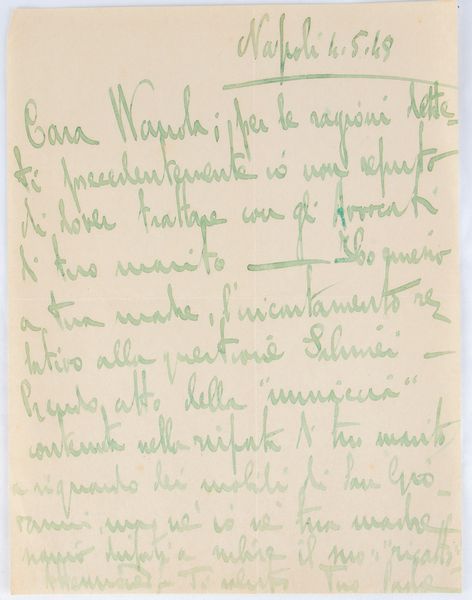 Napoli 4.5.49
Cara Wanda; per le ragioni dette-
ti precedentemente io non reputo
di dover trattare con gli avvocati
di tuo marito —
a tua madre, l'incartamento re
lativo alla questione —
Prendo atto della "minaccia"
contenuta nella risposta di tuo marito
a riguardo dei mobili di San Gio
vanni, ma nè io nè tua madre
siamo disposti a subire il suo "ricatto"
Ti saluto Tuo